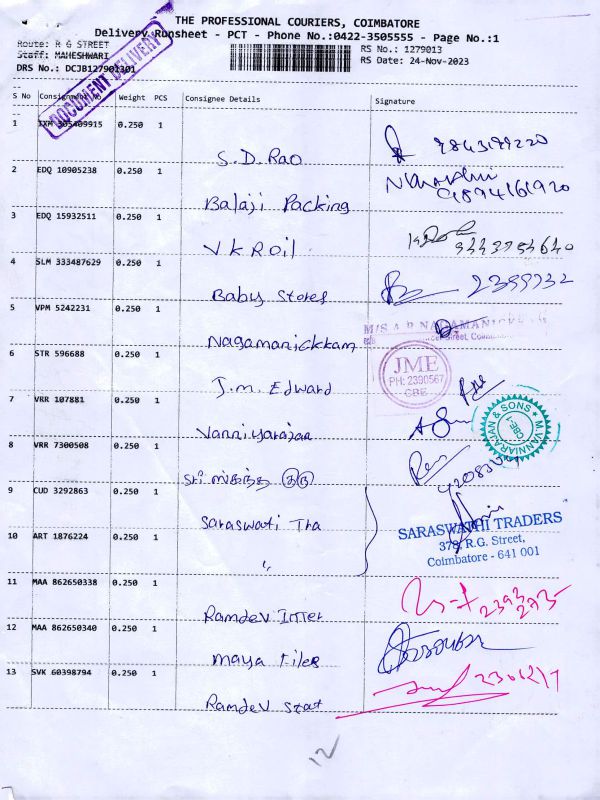 THE PROFESSIONAL COURIERS, COIMBATORE
Delivery Runsheet - PCT - Phone No.:0422-3505555 - Page No.:1
Route: R G STREET
RS No.: 1279013
Staff: MAHESHWARI
RS Date: 24-Nov-2023
DRS No.: DCJB127901301
DOCUMENT DELIVERY
S No Consignment No Weight PCS Consignee Details Signature
1 0.250 1 S.D. Rao
2 EDQ 10905238 0.250 1 Balaji Packing
3 EDQ 15932511 0.250 1 V K R Oil
4 SLM 333487629 0.250 1 Baby Stores 2399732
5 VPM 5242231 0.250 1 Nagamanickkam
M/S A R NAGAMANICKKAM
6 STR 596688 0.250 1 J.M. Edward
JME
PH: 2390567
CBE
7 VRR 107881 0.250 1 Vanniyarajan
M.VANNIARAJAN & SONS
CBE-1
8 VRR 7300508 0.250 1
9 CUD 3292863 0.250 1 Saraswati Tra
SARASWATHI TRADERS
379, R.G. Street,
Coimbatore - 641 001
10 ART 1876224 0.250 1 "
11 MAA 862650338 0.250 1 Ramdev Inter
12 MAA 862650340 0.250 1 Maya Tiles
13 SVK 60398794 0.250 1 Ramdev Stat
12